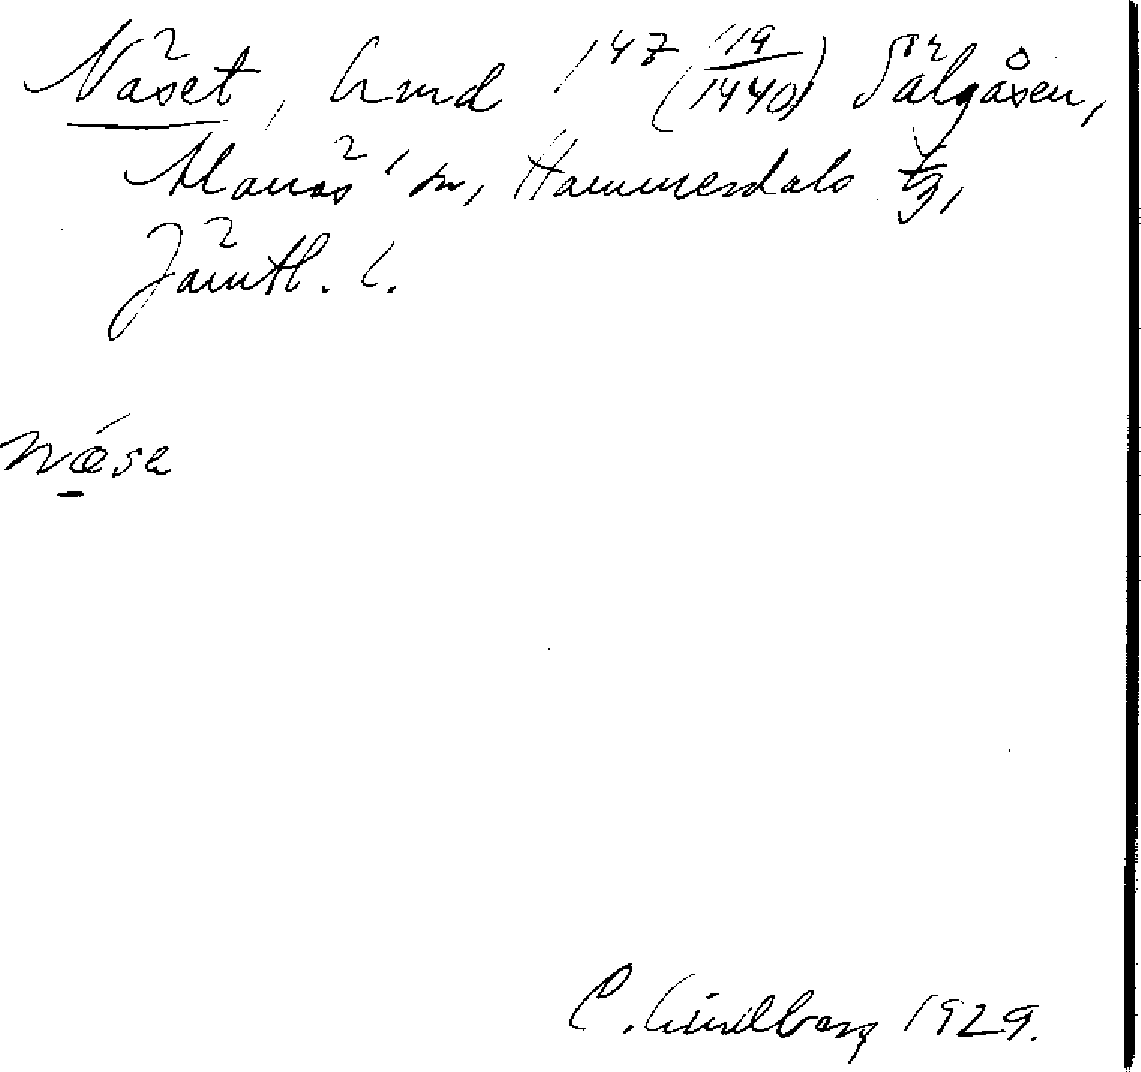 Näset, lmd 147 (19/1440) Sälgåsen,
Alanäs' sn, Hammerdals tg,
Jämtl. l.
næ̀se
C. Lindberg 1929.